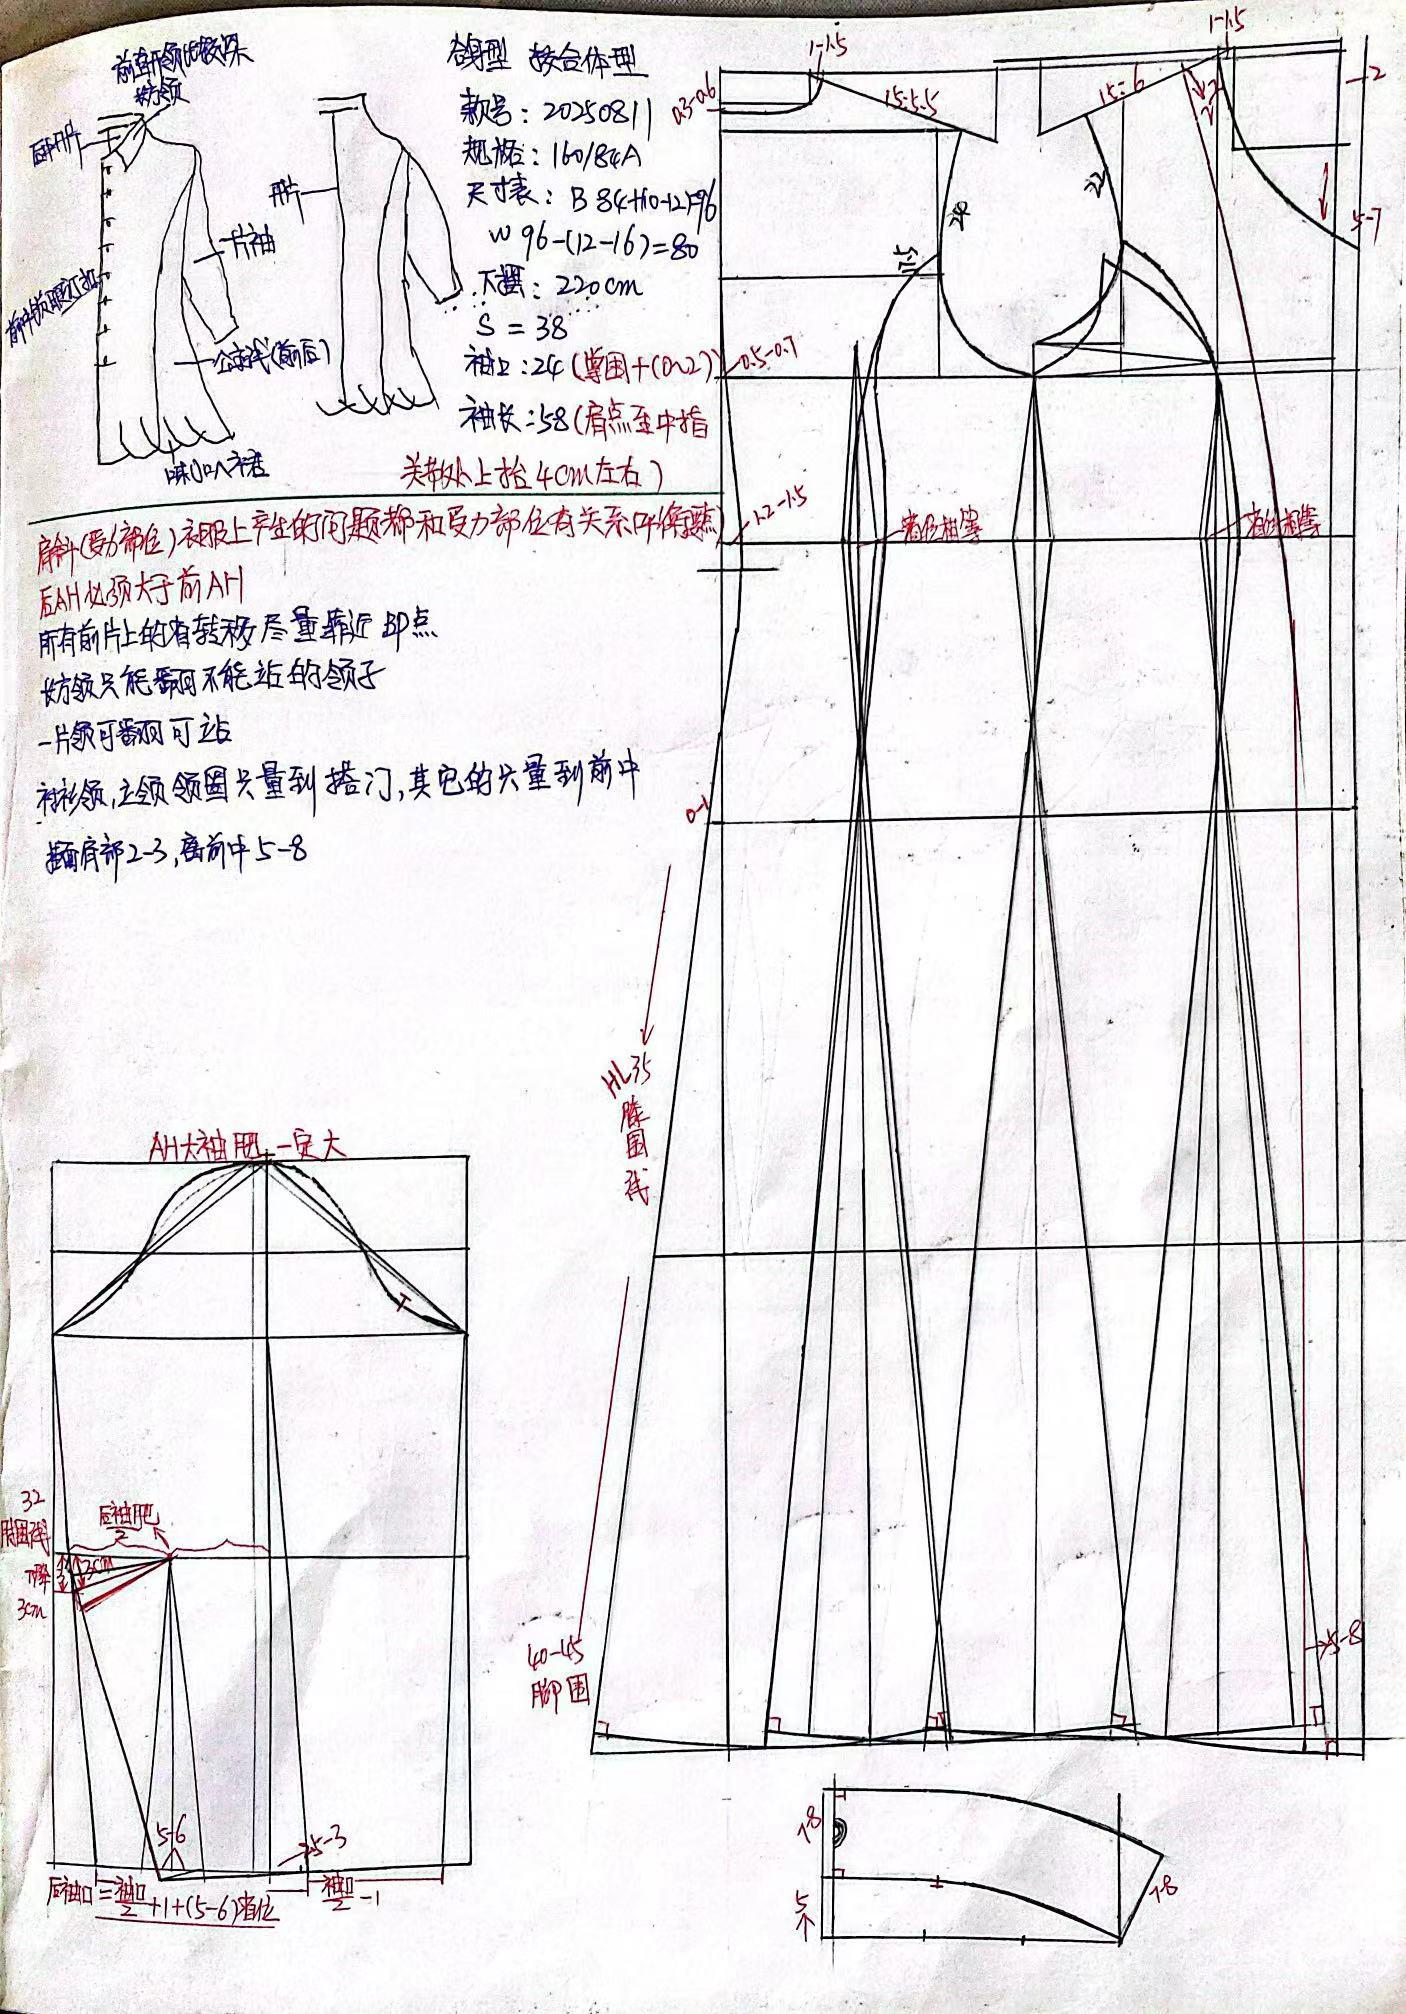 前直开领比较深
坊领
后育片
一片袖
公主线(前后)
合身型 接合体型
款号：20250811
规格：160/84A
尺寸表：B 84+(10-12)=96
W 96-(12-16)=80
下摆：220cm
S = 38
袖口：24(掌围+(0~2))
袖长：58(肩点至中指
关节处上抬4cm左右)
肩斜(受力部位)衣服上产生的问题都和受力部位有关系
后AH必须大于前AH
所有前片上的省转移尽量靠近BP点
坊领只能翻不能站的领子
一片领可翻可站
衬衫领,立领领圈只量到搭门,其它的只量到前中
挂面肩部2-3,离前中5-8
0.3-0.6
1-1.5
15:5.5
15:6
1-1.5
2
2
5-7
24
22
17.5
0.5-0.7
1.2-1.5
省位相等
省位相等
0-1
HL35
膝围线
40-45
脚围
5-8
AH大袖肥一定大
32
肘围线
下降
3cm
后袖肥/2
3cm
5-6
5-3
后袖口=袖口/2+1+(5-6)省位
袖口/2-1
7.8
5
7.8